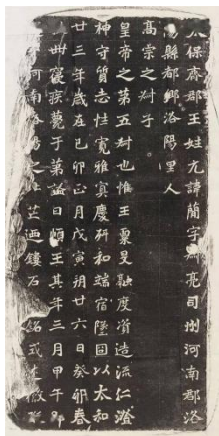 太保齊郡王姓元諱簡字叔亮司州河南郡洛
陽縣都鄉洛陽里人
高宗之叔子
皇帝之第五叔也惟王稟旻融度資造流仁澄
神守質志性寬雅寅慶妍和端宿墜固以太和
廿三年歲在己卯正月戊寅朔廿六日癸卯春
卌寢疾薨于第諡曰順王其年三月甲午
河南洛陽之芒迺鏤石銘式述徽